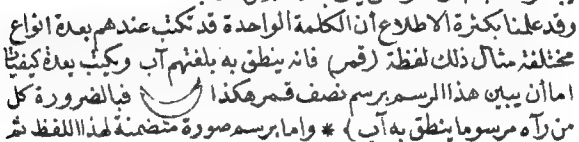 وقد علمنا بكثرة الاطلاع أن الكلمة الواحدة قد تكتب عندهم بعدة انواع
مختلفة مثال ذلك لفظة (قمر) فانه ينطق به بلغتهم آب ويكتب بعدة كيفيات
اما أن يبين هذا الرسم برسم نصف قمر هكذا فبالضرورة كل
من رآه مرسوما ينطق به آب) * واما برسم صورة متضمنة لهذا اللفظ ثم